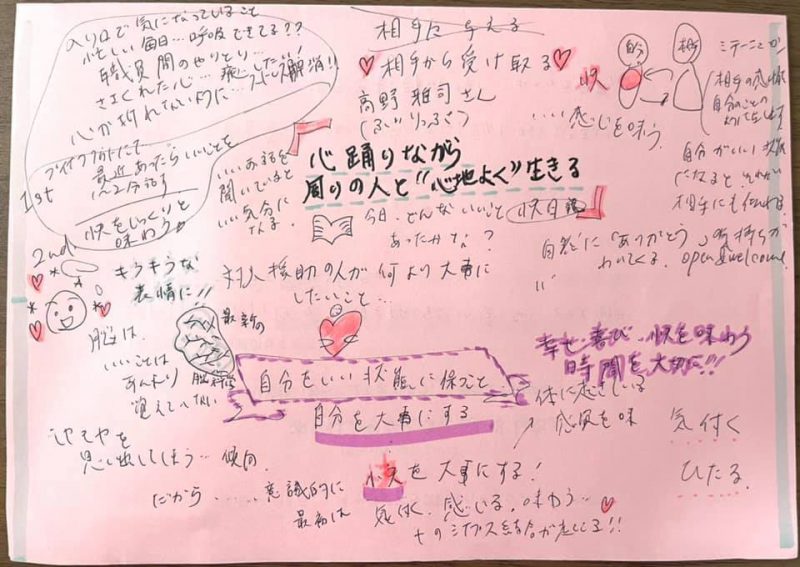 入り口で気になっていること
忙しい毎日…呼吸できてる??
職員間のやりとり…
ささくれた心…癒したい!
心が折れないように…
ブレイクアウトにて
1st
最近あったらいいことを
2分話す
快をじっくりと
味わう
いい話を
聞いていると
いい気分に
なる
相手に与える
相手から受け取る
高野雅司さん
(ふぃりっぷさん)
心踊りながら
周りの人と“心地よく”生きる
自分
相手
快
いい感じを味う
ミラーニューロン
相手の感情
自分のことの
ように
自分がいい状態
になると、それが
相手にも伝わる
今日、どんないいこと
あったかな?
快日誌
自然に「ありがとう」の気持ちが
わいてくる。open&welcome
2nd
キラキラな
表情に!!
対人援助の人が何より大事に
したいこと…
脳は、
いいことは
あんまり
覚えていない
最新の
脳科学
自分をいい状態に保つこと
自分を大事にする
幸せ・喜び・快を味わう
時間を大切に!!
体に感じている
感覚を味
気付く
ひたる
思い出してしまう…傾向
だから……意識的に
最初は
快を大事にする!
気付く、感じる、味わう…
+のシナプス結合が起こる!!